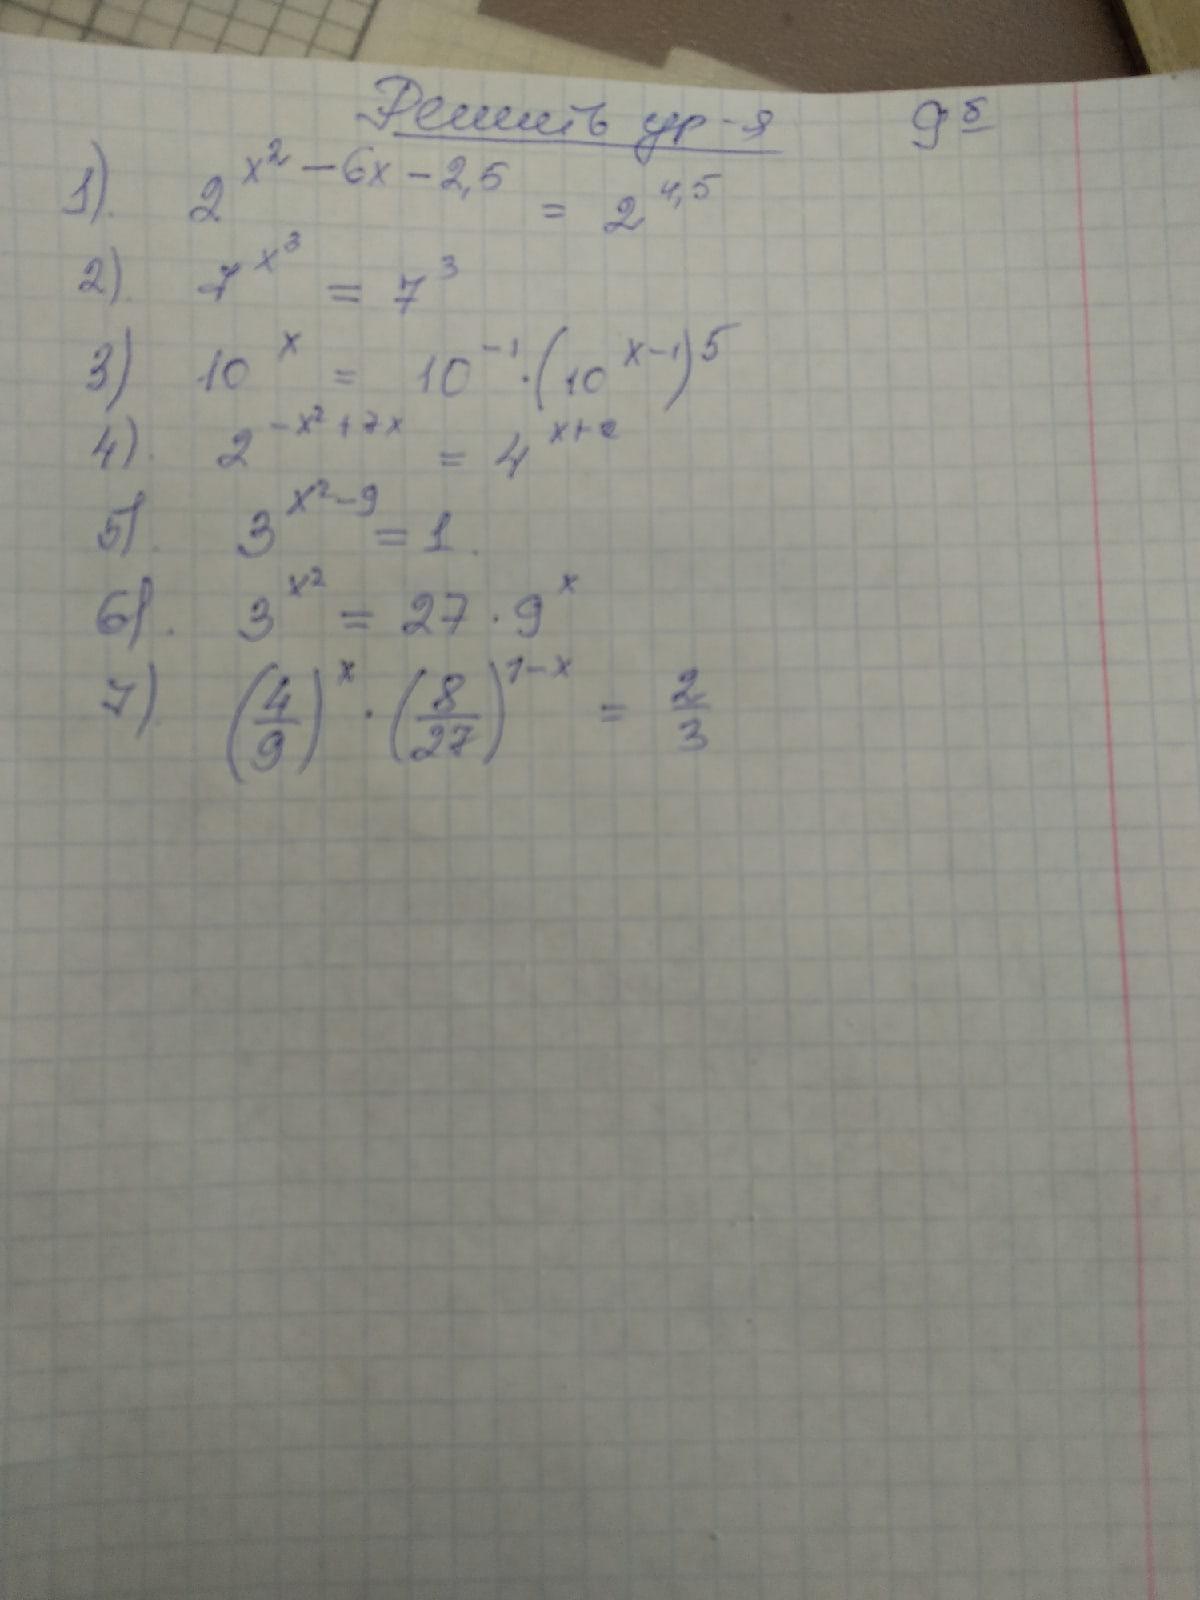 Решить ур-я 9 б
1). 2^{x² - 6x - 2,5} = 2^{4,5}
2). 7^{x³} = 7³
3) 10^x = 10^{-1} · (10^{x-1})^5
4). 2^{-x²+7x} = 4^{x+2}
5). 3^{x²-9} = 1.
6). 3^{x²} = 27 · 9^x
7) (4/9)^x · (8/27)^{1-x} = 2/3